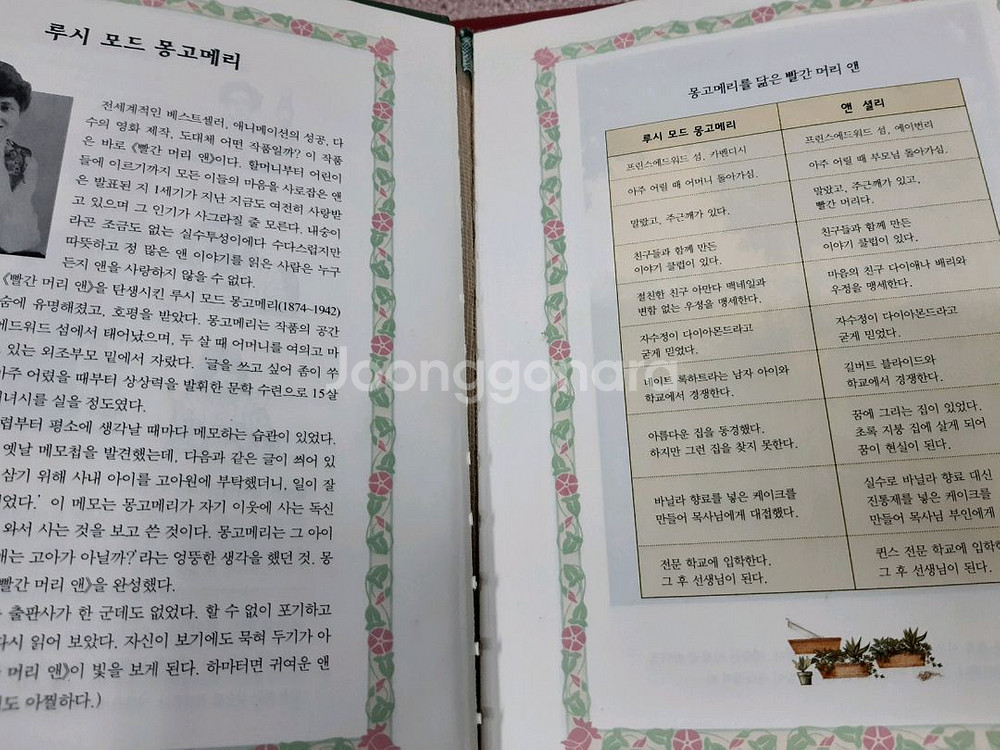 루시 모드 몽고메리
전세계적인 베스트셀러, 애니메이션의 성공, 다
수의 영화 제작, 도대체 어떤 작품일까? 이 작품
은 바로 《빨간 머리 앤》이다. 할머니부터 어린이
들에 이르기까지 모든 이들의 마음을 사로잡은 앤
은 발표된 지 1세기가 지난 지금도 여전히 사랑받
고 있으며 그 인기가 사그라질 줄 모른다. 내숭이
라곤 조금도 없는 실수투성이에다 수다스럽지만
따뜻하고 정 많은 앤 이야기를 읽은 사람은 누구
든지 앤을 사랑하지 않을 수 없다.
《빨간 머리 앤》을 탄생시킨 루시 모드 몽고메리(1874-1942)
숨에 유명해졌고, 호평을 받았다. 몽고메리는 작품의 공간
에드워드 섬에서 태어났으며, 두 살 때 어머니를 여의고 마
있는 외조부모 밑에서 자랐다. '글을 쓰고 싶어 좀이 쑤
아주 어렸을 때부터 상상력을 발휘한 문학 수련으로 15살
너시를 실을 정도였다.
럽부터 평소에 생각날 때마다 메모하는 습관이 있었다.
옛날 메모첩을 발견했는데, 다음과 같은 글이 씌어 있
삼기 위해 사내 아이를 고아원에 부탁했더니, 일이 잘
었다.' 이 메모는 몽고메리가 자기 이웃에 사는 독신
와서 사는 것을 보고 쓴 것이다. 몽고메리는 그 아이
애는 고아가 아닐까?'라는 엉뚱한 생각을 했던 것. 몽
빨간 머리 앤》을 완성했다.
출판사가 한 군데도 없었다. 할 수 없이 포기하고
다시 읽어 보았다. 자신이 보기에도 묵혀 두기가 아
머리 앤》이 빛을 보게 된다. 하마터면 귀여운 앤
도 아찔하다.)
몽고메리를 닮은 빨간 머리 앤
루시 모드 몽고메리 앤 셜리
프린스에드워드 섬, 카벤디시 프린스에드워드 섬, 에이번리
아주 어릴 때 어머니 돌아가심. 아주 어릴 때 부모님 돌아가심.
말랐고, 주근깨가 있다. 말랐고, 주근깨가 있고,
빨간 머리다.
친구들과 함께 만든 친구들과 함께 만든
이야기 클럽이 있다. 이야기 클럽이 있다.
절친한 친구 아만다 맥네일과 마음의 친구 다이애나 배리와
변함 없는 우정을 맹세한다. 우정을 맹세한다.
자수정이 다이아몬드라고 자수정이 다이아몬드라고
굳게 믿었다. 굳게 믿었다.
네이트 록하트라는 남자 아이와 길버트 블라이드와
학교에서 경쟁한다. 학교에서 경쟁한다.
아름다운 집을 동경했다. 꿈에 그리는 집이 있었다.
하지만 그런 집을 찾지 못한다. 초록 지붕 집에 살게 되어
꿈이 현실이 된다.
바닐라 향료를 넣은 케이크를 실수로 바닐라 향료 대신
만들어 목사님에게 대접했다. 진통제를 넣은 케이크를
만들어 목사님 부인에게
전문 학교에 입학한다. 퀸스 전문 학교에 입학
그 후 선생님이 된다. 그 후 선생님이 된다.
Joonggonara